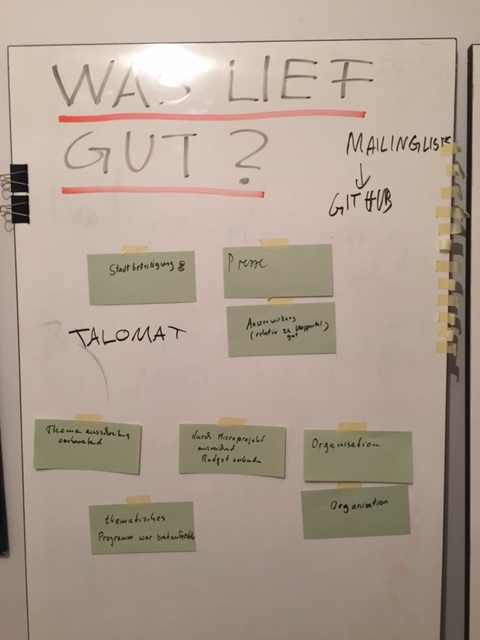 WAS LIEF
GUT?
MAILINGLISTE
↓
GITHUB
Stadtbeteiligung
Presse
Aussenwirkung
(relativ zu Wuppertal)
gut
TALOMAT
Themenausrichtung
vorhanden
durch Microprojekt
ausreichend
Budget vorhanden
Organisation
Organisation
thematisches
Programm war breit